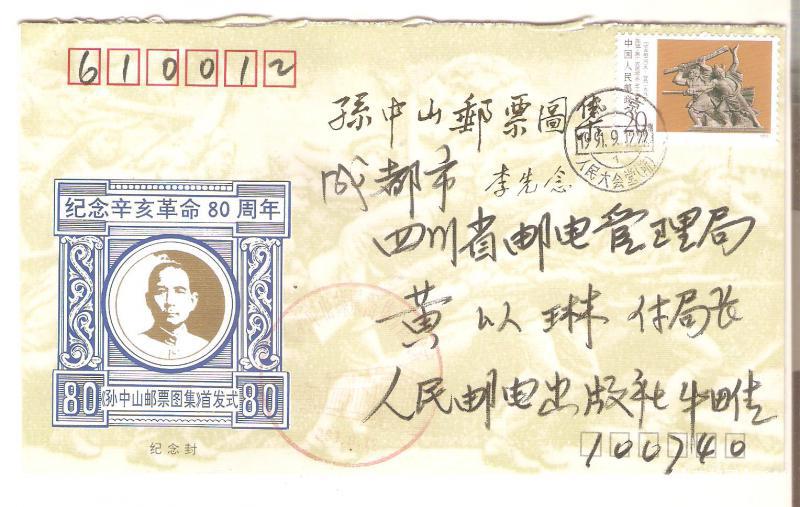 610012
中国人民邮政
20分
孫中山郵票圖集
李先念
1991.9.19
人民大会堂
成都市
四川省邮电管理局
黄以琳付局长
人民邮电出版社牛田佳
100740
纪念辛亥革命80周年
80《孙中山邮票图集》首发式80
纪念封